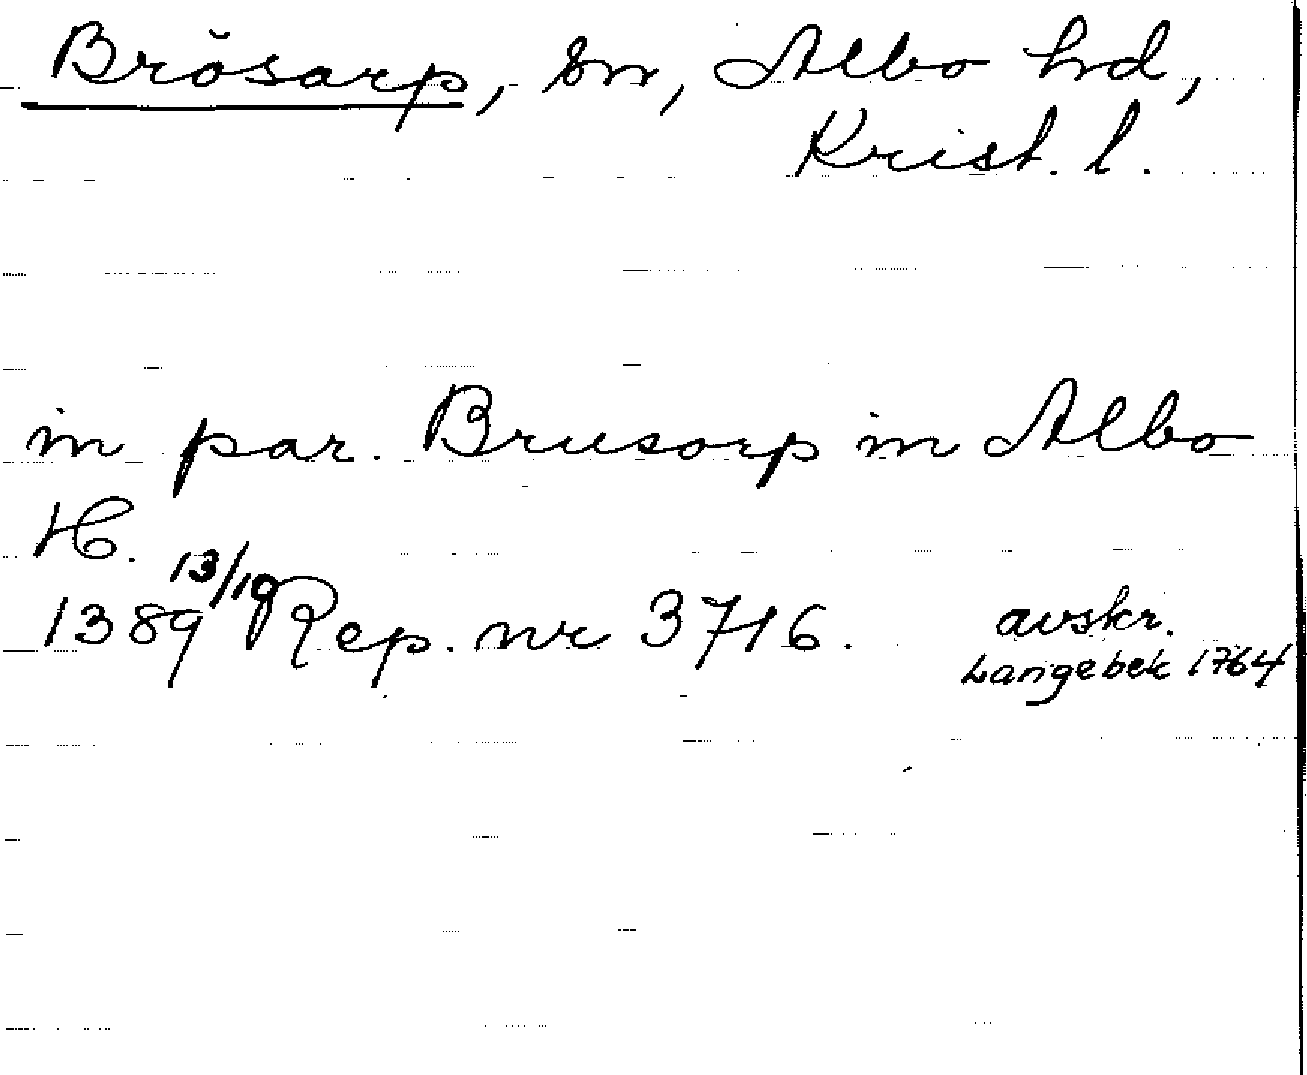 Brösarp, sn, Albo hrd,
Krist. l.
in par. Brusorp in Albo
H.
1389 13/10 Rep. nr 3716. avskr.
Langebek 1764